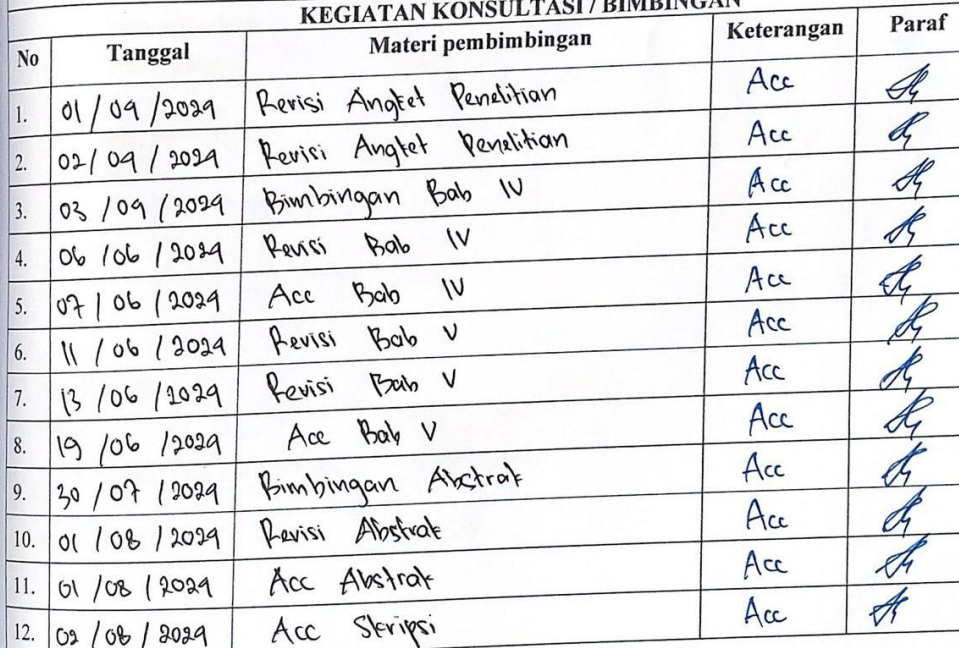 KEGIATAN KONSULTASI / BIMBINGAN
No Tanggal Materi pembimbingan Keterangan Paraf
1. 01 / 04 / 2024 Revisi Angket Penelitian Acc
2. 02 / 04 / 2024 Revisi Angket Penelitian Acc
3. 03 / 04 / 2024 Bimbingan Bab IV Acc
4. 06 / 06 / 2024 Revisi Bab IV Acc
5. 07 / 06 / 2024 Acc Bab IV Acc
6. 11 / 06 / 2024 Revisi Bab V Acc
7. 13 / 06 / 2024 Revisi Bab V Acc
8. 19 / 06 / 2024 Acc Bab V Acc
9. 30 / 07 / 2024 Bimbingan Abstrak Acc
10. 01 / 08 / 2024 Revisi Abstrak Acc
11. 01 / 08 / 2024 Acc Abstrak Acc
12. 02 / 08 / 2024 Acc Skripsi Acc